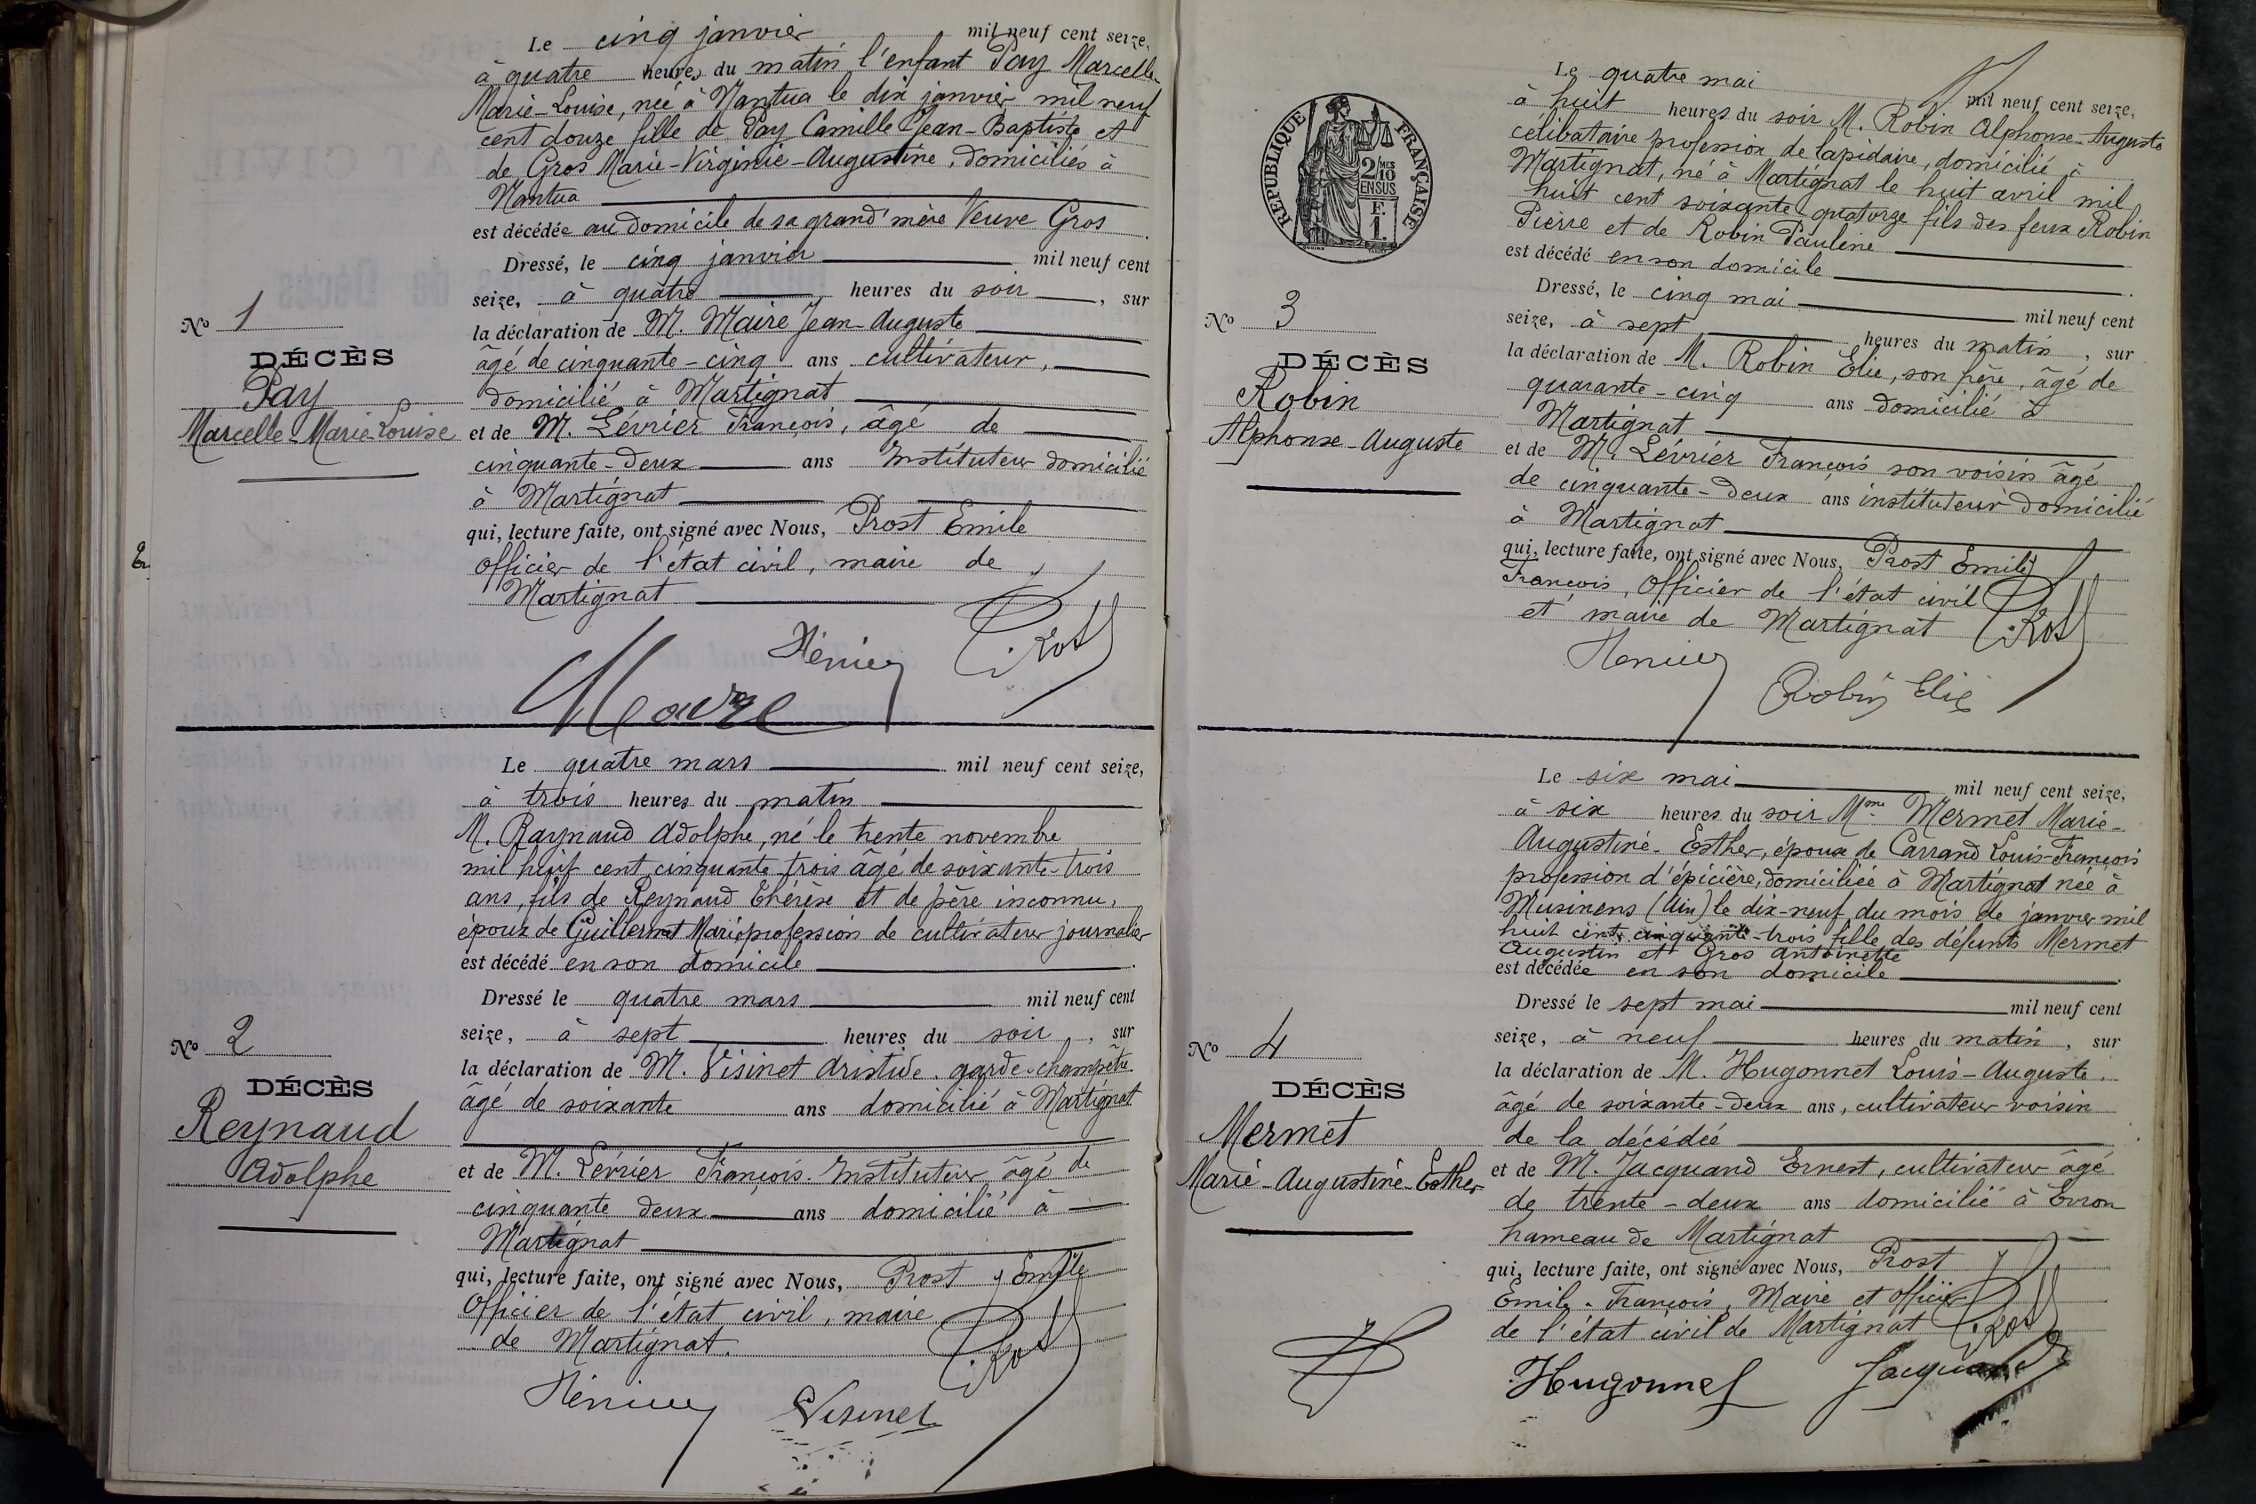 Le cinq janvier mil neuf cent seize,
à quatre heures du matin l'enfant Pay Marcelle-
Marie-Louise, née à Nantua le dix janvier mil neuf
cent douze fille de Pay Camille Jean-Baptiste et
de Gros Marie-Virginie-Augustine, domiciliés à
Nantua
est décédée au domicile de sa grand'mère Veuve Gros
Dressé, le cinq janvier mil neuf cent
seize, à quatre heures du soir, sur
la déclaration de M. Maire Jean-Auguste
âgé de cinquante-cinq ans cultivateur,
domicilié à Martignat
et de M. Lévrier François, âgé de
cinquante-deux ans Instituteur domicilié
à Martignat
qui, lecture faite, ont signé avec Nous, Prost Emile
Officier de l'état civil, maire de
Martignat
Prost
Maire
No 1
DÉCÈS
Pay
Marcelle-Marie-Louise
Le quatre mars mil neuf cent seize,
à trois heures du matin
M. Raynaud Adolphe, né le trente novembre
mil huit cent cinquante-trois âgé de soixante-trois
ans, fils de Reynaud Thérèse et de père inconnu,
époux de Guillermet Marie profession de cultivateur journalier
est décédé en son domicile
Dressé le quatre mars mil neuf cent
seize, à sept heures du soir, sur
la déclaration de M. Visinet Aristide garde-champêtre
âgé de soixante ans domicilié à Martignat
et de M. Lévrier François Instituteur âgé de
cinquante deux ans domicilié à
Martignat
qui, lecture faite, ont signé avec Nous, Prost Emile
Officier de l'état civil, maire
de Martignat.
Prost
Visinet
No 2
DÉCÈS
Reynaud
Adolphe
RÉPUBLIQUE FRANÇAISE
2 MES
10
EN SUS
F.
1.
Le quatre mai mil neuf cent seize,
à huit heures du soir M. Robin Alphonse-Auguste
célibataire profession de lapidaire, domicilié à
Martignat, né à Martignat le huit avril mil
huit cent soixante quatorze fils des feux Robin
Pierre et de Robin Pauline
est décédé en son domicile
Dressé, le cinq mai mil neuf cent
seize, à sept heures du matin, sur
la déclaration de M. Robin Elie, son frère, âgé de
quarante-cinq ans domicilié à
Martignat
et de M. Lévrier François son voisin âgé
de cinquante-deux ans instituteur domicilié
à Martignat
qui, lecture faite, ont signé avec Nous, Prost Emile
François, Officier de l'état civil
et maire de Martignat
Prost
Robin Elie
No 3
DÉCÈS
Robin
Alphonse-Auguste
Le six mai mil neuf cent seize,
à six heures du soir Mme Mermet Marie-
Augustine-Esther, épouse de Carrand Louis-François
profession d'épicière, domiciliée à Martignat née à
Musinens (Ain) le dix-neuf du mois de janvier mil
huit cent cinquante-trois fille des défunts Mermet
Augustin et Gros Antoinette
est décédée en son domicile
Dressé le sept mai mil neuf cent
seize, à neuf heures du matin, sur
la déclaration de M. Hugonnet Louis-Auguste
âgé de soixante-deux ans, cultivateur voisin
de la décédée
et de M. Jacquand Ernest, cultivateur âgé
de trente-deux ans domicilié à Evron
hameau de Martignat
qui, lecture faite, ont signé avec Nous, Prost
Emile-François, Maire et officier
de l'état civil de Martignat
Prost
Hugonnet
Jacquand
No 4
DÉCÈS
Mermet
Marie-Augustine-Esther